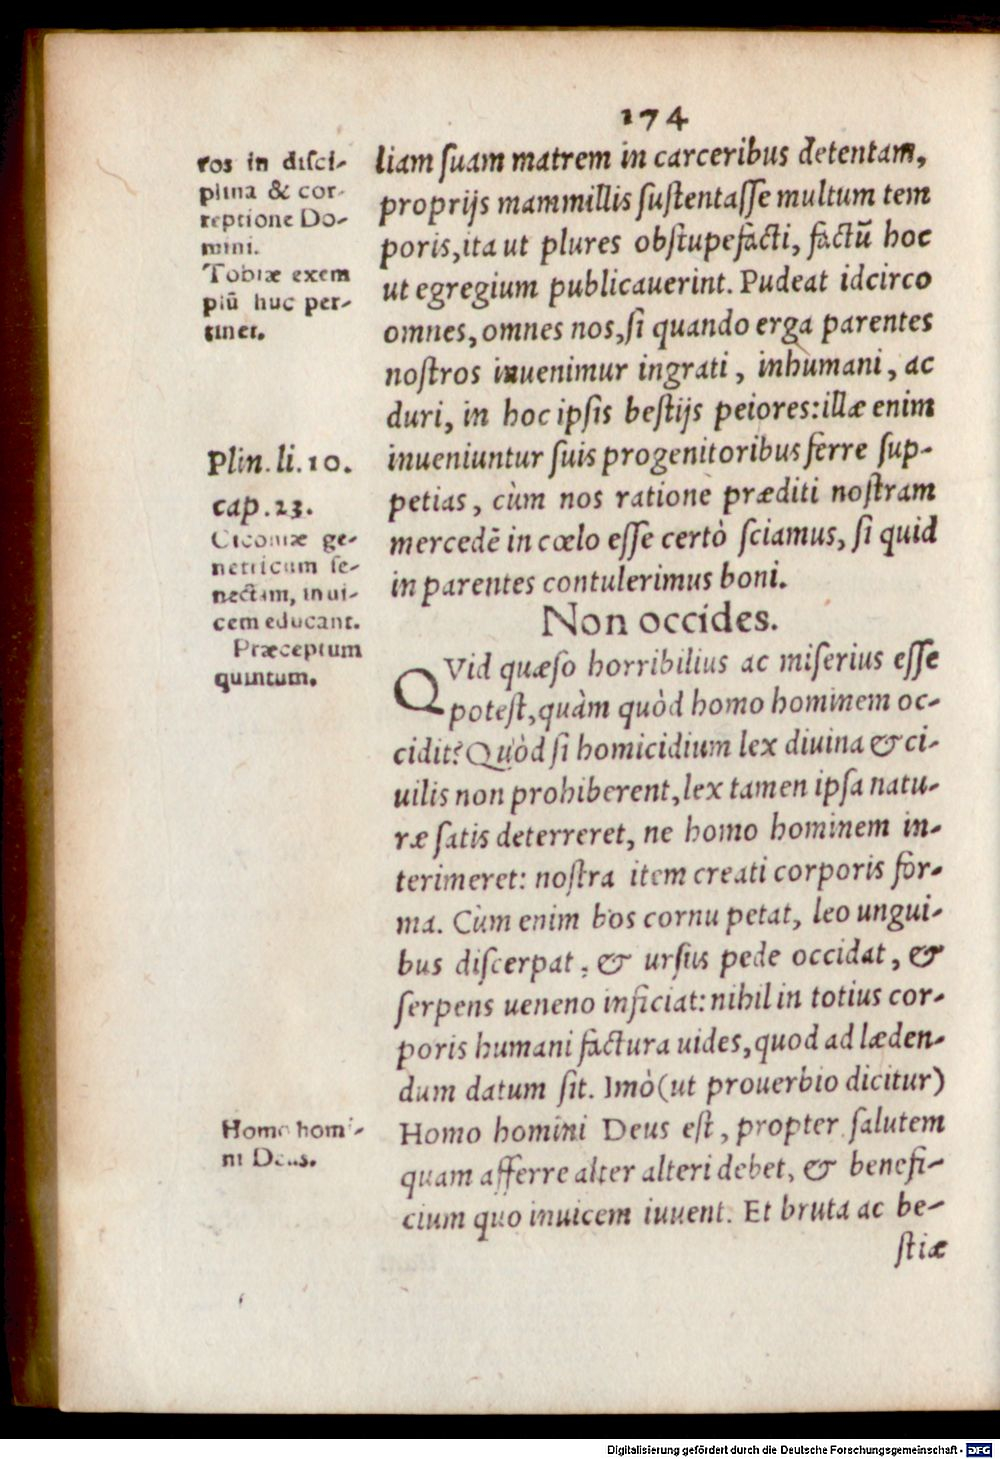 174
ros in disci-
plina & cor-
reptione Do-
mini.
Tobiæ exem
plū huc per-
tinet.
Plin. li. 10.
cap. 23.
Ciconiæ ge-
netricum se-
nectam, inui-
cem educant.
Præceptum
quintum.
Homo homi-
ni Deus.
liam ſuam matrem in carceribus detentam,
proprijs mammillis ſuſtentaſſe multum tem
poris, ita ut plures obſtupefacti, factū hoc
ut egregium publicauerint. Pudeat idcirco
omnes, omnes nos, ſi quando erga parentes
noſtros inuenimur ingrati, inhumani, ac
duri, in hoc ipſis beſtijs peiores: illæ enim
inueniuntur ſuis progenitoribus ferre ſup-
petias, cùm nos ratione præditi noſtram
mercedē in cœlo eſſe certò ſciamus, ſi quid
in parentes contulerimus boni.
Non occides.
QVid quæſo horribilius ac miſerius eſſe
poteſt, quàm quòd homo hominem oc-
cidit? Quòd ſi homicidium lex diuina & ci-
uilis non prohiberent, lex tamen ipſa natu-
ræ ſatis deterreret, ne homo hominem in-
terimeret: noſtra item creati corporis for-
ma. Cùm enim bos cornu petat, leo ungui-
bus diſcerpat, & urſus pede occidat, &
ſerpens ueneno inficiat: nihil in totius cor-
poris humani factura uides, quod ad læden-
dum datum ſit. Imò (ut prouerbio dicitur)
Homo homini Deus eſt, propter ſalutem
quam afferre alter alteri debet, & benefi-
cium quo inuicem iuuent. Et bruta ac be-
ſtiæ
Digitalisierung gefördert durch die Deutsche Forschungsgemeinschaft - DFG